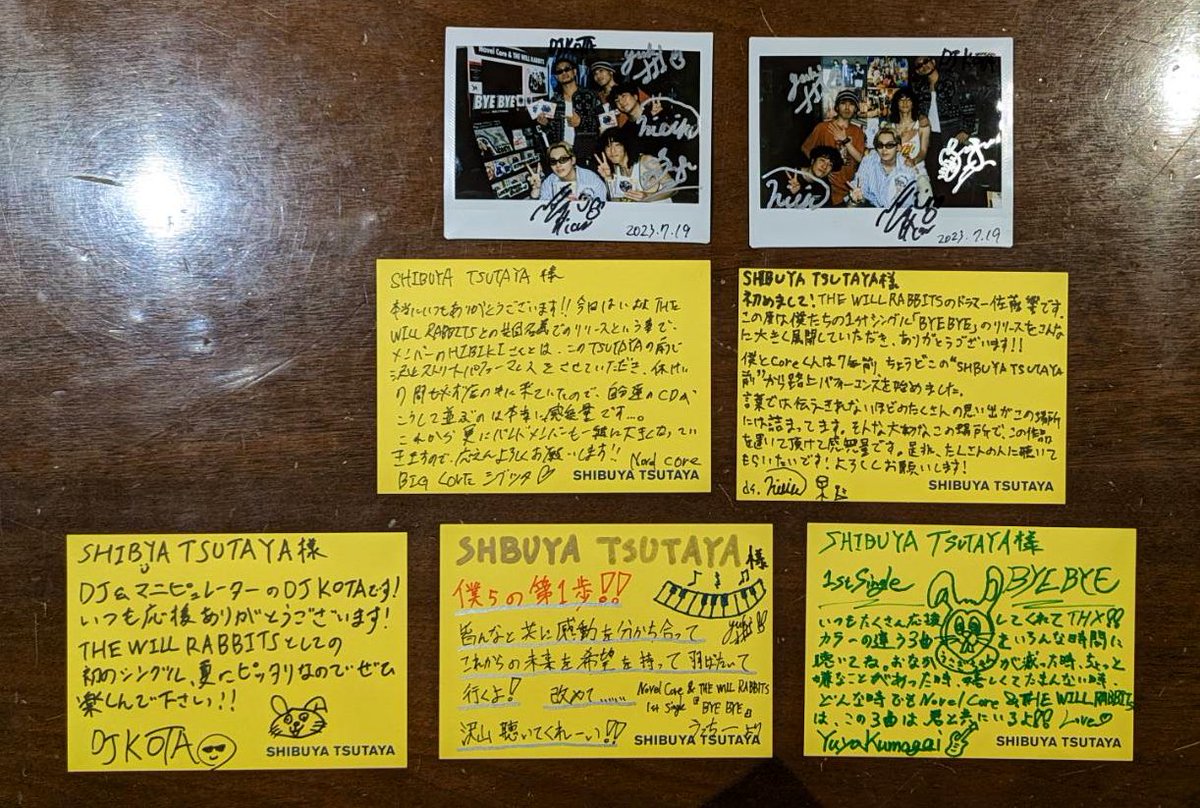 Novel Core & THE WILL RABBITS
BYE BYE
DJ KOTA
yuki
hibiki
2023.7.19
yuki
DJ KOTA
2023.7.19
SHIBUYA TSUTAYA 様
本当にいつもありがとうございます!! 今回はいよいよ THE
WILL RABBITSとの共同名義でのリリースという事で、
メンバーのHIBIKIさんとは、このTSUTAYAの前で
沢山ストリートパフォーマンスをさせていただき、休けい
の間も必ず店の中に来ていたので、自分達のCDが
こうして並ぶのは本当に感慨深いです…。
これから更にバンドメンバーも一緒に大きくなってい
きますので、応えんよろしくお願いします!!
Novel Core
BIG LOVE シブツタ♡
SHIBUYA TSUTAYA
SHIBUYA TSUTAYA様
初めまして!THE WILL RABBITSのドラマー佐藤響です。
この度は僕たちの1stシングル「BYE BYE」のリリースをこんな
に大きく展開していただき、ありがとうございます!!
僕とCoreくんは7年前、ちょうどこの"SHIBUYA TSUTAYA
前"から路上パフォーマンスを始めました。
言葉では伝えきれないほどのたくさんの思い出がこの場所
には詰まってます。そんな大切なこの場所で、この作品
を置いて頂けて感無量です。是非、たくさんの人に聴いて
もらいたいです!よろしくお願いします!
ds.
SHIBUYA TSUTAYA
SHIBYA TSUTAYA様
U
DJ&マニピュレーターのDJ KOTAです!
いつも応援ありがとうございます!
THE WILL RABBITSとしての
初めシングル、夏にピッタリなのでぜひ
楽しんで下さい!!
DJ KOTA
SHIBUYA TSUTAYA
SHBUYA TSUTAYA様
僕らの第1歩!!
皆んなと共に感動を分かち合って
これからの未来を希望を持って羽ばたいて
行くよ! 改めて……
yuki
Novel Core & THE WILL RABBITS
1st Single 『BYE BYE』
沢山聴いてくれーい!!
SHIBUYA TSUTAYA
SHIBUYA TSUTAYA様
1st Single BYE BYE
いつもたくさん応援してくれてTHX!!
カラーの違う3曲をいろんな時間に
聴いてね。おなかが減った時、ちょっと
嫌なことがあった時、嬉しくてたまんない時、
どんな時でもNovel Core & THE WILL RABBITS
は、この3曲は、君と共にいるよ!! Love♡
Yuya Kumagai
SHIBUYA TSUTAYA